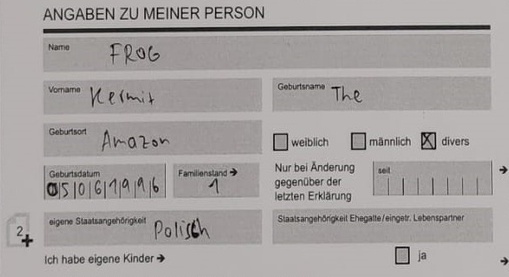 ANGABEN ZU MEINER PERSON
Name FROG
Vorname Kermit Geburtsname The
Geburtsort Amazon weiblich männlich X divers
Geburtsdatum 05061996 Familienstand → 1 Nur bei Änderung gegenüber der letzten Erklärung seit →
eigene Staatsangehörigkeit Polisch Staatsangehörigkeit Ehegatte/eingetr. Lebenspartner
2+
Ich habe eigene Kinder → ja →